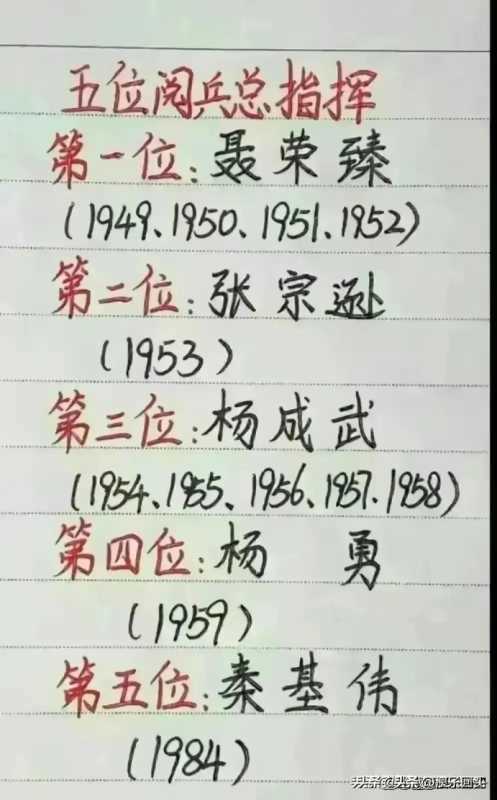 五位阅兵总指挥
第一位:聂荣臻
(1949、1950、1951、1952)
第二位:张宗逊
(1953)
第三位:杨成武
(1954、1955、1956、1957、1958)
第四位:杨 勇
(1959)
第五位:秦基伟
(1984)